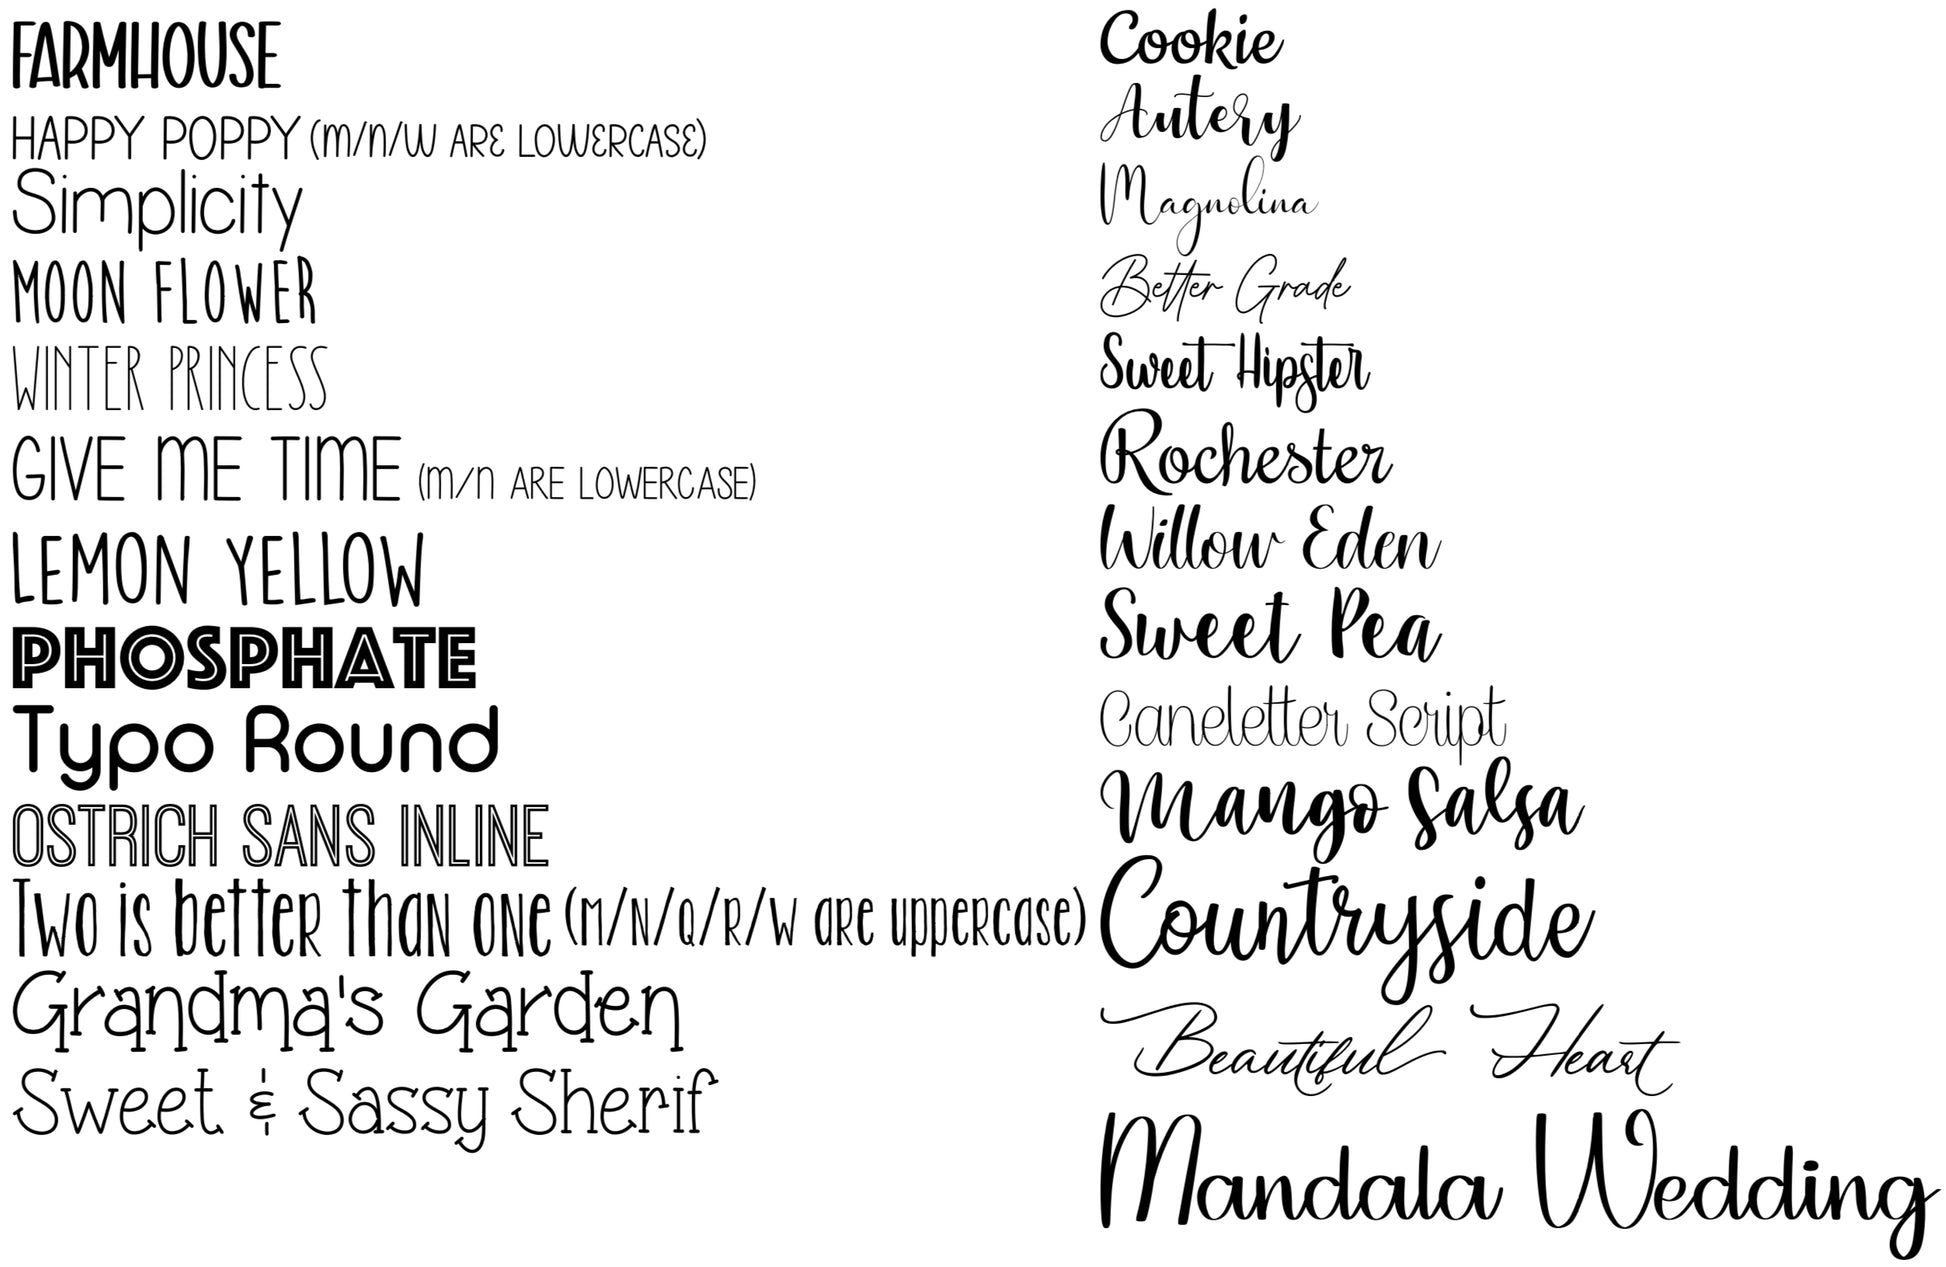 FARMHOUSE
HAPPY POPPY (m/n/w ARE LOWERCASE)
Simplicity
MOON FLOWER
WINTER PRINCESS
GIVE mE TIME (m/n ARE LOWERCASE)
LEMON YELLOW
PHOSPHATE
Typo Round
OSTRICH SANS INLINE
Two is better than one (M/N/Q/R/W are uppercase)
Grandma's Garden
Sweet & Sassy Sherif
Cookie
Autery
Magnolina
Better Grade
Sweet Hipster
Rochester
Willow Eden
Sweet Pea
Caneletter Script
Mango Salsa
Countryside
Beautiful Heart
Mandala Wedding